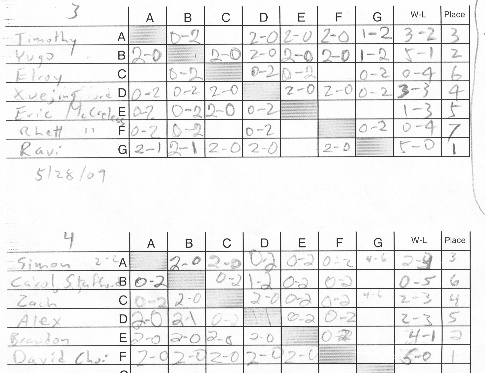 3 A B C D E F G W-L Place
Timothy A 0-2 2-0 2-0 2-0 1-2 3-2 3
Yugo B 2-0 2-0 2-0 2-0 2-0 1-2 5-1 2
Elroy C 0-2 0-2 0-2 0-2 0-4 6
Xuejing D 0-2 0-2 2-0 2-0 2-0 0-2 3-3 4
Eric E 0-2 0-2 2-0 0-2 1-3 5
Rhett " F 0-2 0-2 0-2 0-2 0-4 7
Ravi G 2-1 2-1 2-0 2-0 2-0 5-0 1
5/28/09
4 A B C D E F G W-L Place
Simon A 2-0 2-0 0-2 0-2 0-2 3
Carol B 0-2 0-2 1-2 0-2 0-2 0-5 6
Zach C 0-2 2-0 2-0 0-2 0-2 2-3 4
Alex D 2-0 2-1 0-2 0-2 0-2 2-3 5
Brandon E 2-0 2-0 2-0 2-0 4-1 2
David Choi F 2-0 2-0 2-0 2-0 2-0 5-0 1